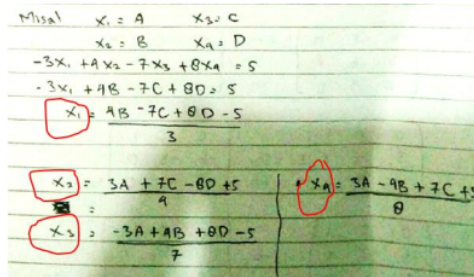 Misal x₁ = A x₃ = C
x₂ = B x₄ = D
-3x₁ + 4x₂ - 7x₃ + 8x₄ = 5
-3x₁ + 4B - 7C + 8D = 5
x₁ = 4B - 7C + 8D - 5
3
x₂ = 3A + 7C - 8D + 5
4
x₃ = -3A + 4B + 8D - 5
7
x₄ = 3A - 4B + 7C + 5
8